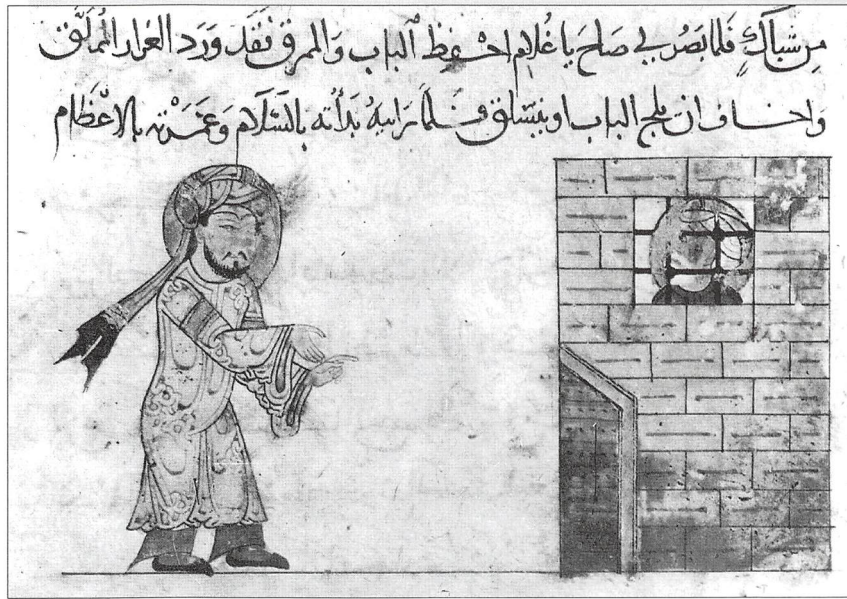 مِن شباكٍ فلما بَصُر بي صاحَ يا غُلام احفِظ الباب وَالممرق فقَد وَرَد العرار المُملَّق
وَاخاف ان يلج الباب او يتسلق فلما رايتهُ بَدَأته بالسَّلَام وَغَمَرْته بالاعْظام